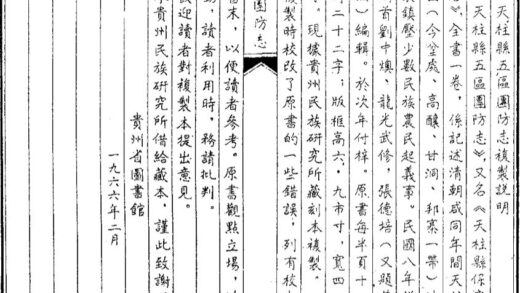 天柱縣五區團防志》複製説明
天柱縣五區團防志》,又名《天柱縣保
》,全書一卷,係記述清朝咸同年間天
(今坌處、高釀、甘洞、邦寨一帶)
鎮壓少數民族農民起義事。民國八年
首劉中燠,龍光武修,張德培(又題
)編輯。於次年付梓。原書每半頁十
二十二字;版框高六·九市寸,寬四
。現據貴州民族研究所藏刻本複製。
製時校改了原書的一些錯誤,列有校
書末,以便讀者參考。原書觀點立場,
讀者利用時,務請批判。
歡迎讀者對複製本提出意見。
貴州民族研究所借給藏本,謹此致謝
貴州省圖書館
一九六六年二月
團防志